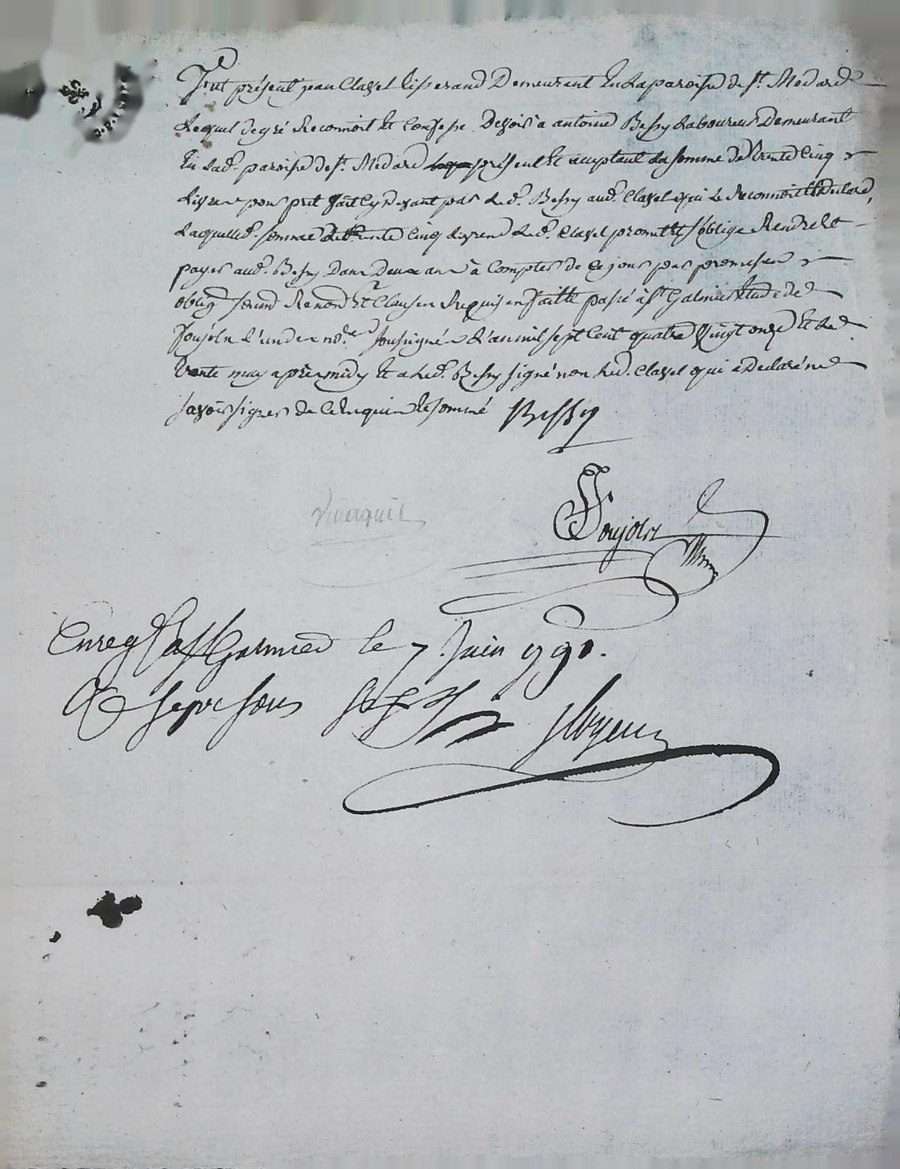 Fut présent jean Clavel tisserand Demeurant En la paroisse de st. Medard
Lequel de gré Reconnoit Et Confesse Devoir a antoine Bessy Laboureur Demeurant
En lad. paroisse de st. Medard présent Et acceptant La somme de trente Cinq
Livres pour prêt fait Cy devant par Led. Bessy aud. Clavel qui Le Reconnoit Et Declare,
Laquelle. somme de trente Cinq Livres Led. Clavel promet Et s'oblige Rendre Et
payer aud. Bessy Dans Deux ans à Compter de Ce jour par promesse
oblig. soumd. Renond. Et Clauses Requises fait Et passé à st. Galmier Etude de
Soujols L'un des no.res soussigné L'an mil sept Cent quatre Vingt onze Et Le
trente may après midy Et a Led. Bessy signé non Led. Clavel qui a Declaré ne
savoir signer de Ce Enquis Et sommé Bessy
Soujols
Enreg. à st Galmier le 7 Juin 1791.
Rç sept sous